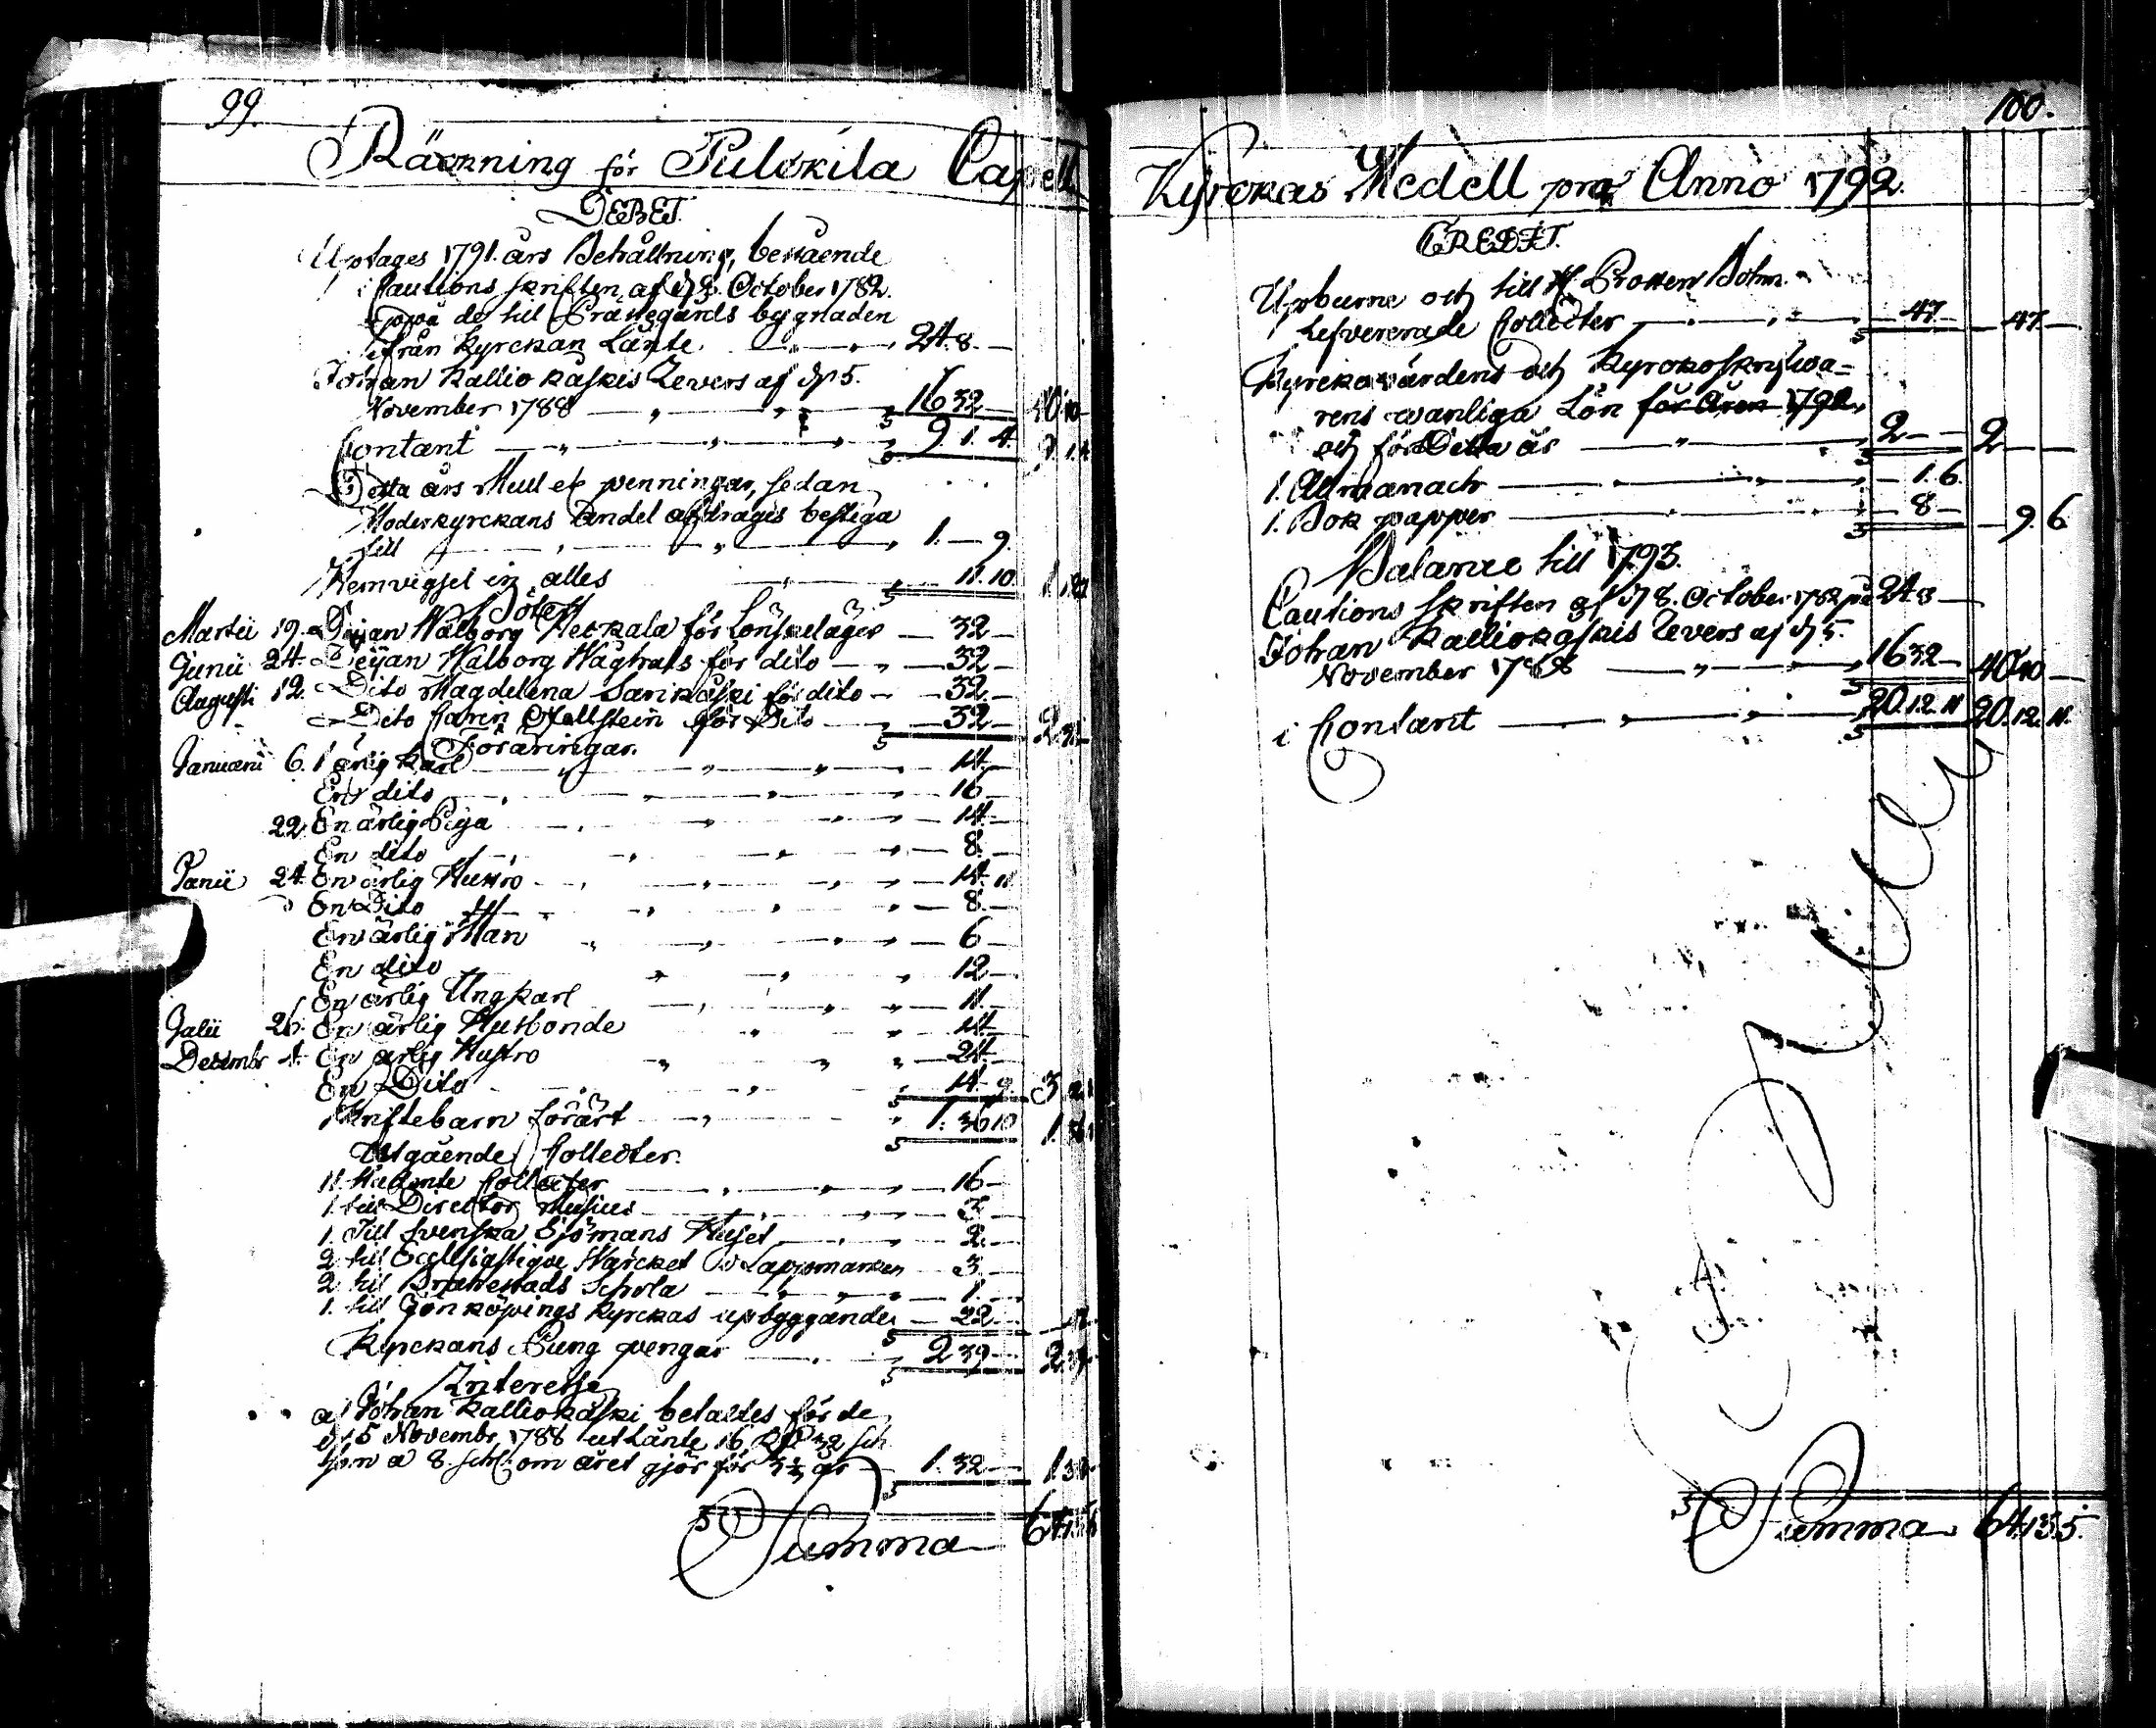 99.
Räckning för Pulckila Capell
DEBET.
Uptages 1791 års Behållning, bestående
i Cautions skriften af d 8. October 1782.
uppå de till Prästegårds bygnaden
ifrån Kyrckan Länte 24. 8. —
Johan Kalliokaskis Revers af d 5.
November 1788 16 32 — 40. 40
Contant 9. 1. 4. 9. 1. 4
Detta års Mull etc penningar, sedan
Moderkyrckans andel afdragis bestiga
till 1. — 9.
Hemvigsel in alles — 11. 10.
Böter
Martii 19. Pijan Walborg Heckala för Lönskeläger — 32 —
Junii 24. Peijan Walborg för dito — 32 —
Augusti 12. Dito Magdelena Sarikaski för dito — 32 —
Dito Carin för Dito — 32 —
Föräringar.
Januarii 6. 1 ärlig karl — 14. —
En dito — 16 —
22. En ärlig Piga — 14. —
En dito — 8. —
Junii 24. En ärlig Hustro — 14. 11.
En Dito — 8. —
En ärlig Man — 6 —
En dito — 12 —
En ärlig Ungkarl — 11. —
Julii 26. En ärlig Husbonde — 14 —
Decembr 4. En ärlig Hustro — 24. —
En Dito — 14. 9.
Skriftebarn förärt 1. 36 10
Utgående Collecter.
11. Stående Collecter — 16 —
1. till Director Musices — 3 —
1. Till Svenska Sjömans Huset — 2. —
2 till Ecclesiastique Wärcket i Lappmarken — 3 —
2 till Brahestads Schola — 1. —
1. till Jönköpings Kyrckas upbyggande — 22 —
Kyrckans Pung pengar 2 39 —
Interesse
af Johan Kalliokaski betaltes för de
d 5 Novembr. 1788 utlänte 16 Rd 32 sch
som a 8. sch. om året gjör för år 1. 32 —
Summa
100.
Kyrckas Medell pro Anno 1792.
CREDIT.
Upburne och till H Prosten Bohm
Lefvererade Collecter — 47. — — 47 —
Kyrckovärdens och Kyrckoskrifwa=
rens wanliga Lön för åren 1792,
och för Detta år 2 — — 2 — —
1. Allmanach — 1. 6.
1. Bok papper — 8 — — 9. 6
Balance till 1793.
Cautions skriften af d 8. October 1782 på 24 8 —
Johan Kalliokaskis Revers af d 5.
November 1788 16 32 — 40 40 —
i Contant 20. 12. 11 20. 12. 11.
Summa 64. 13. 5.